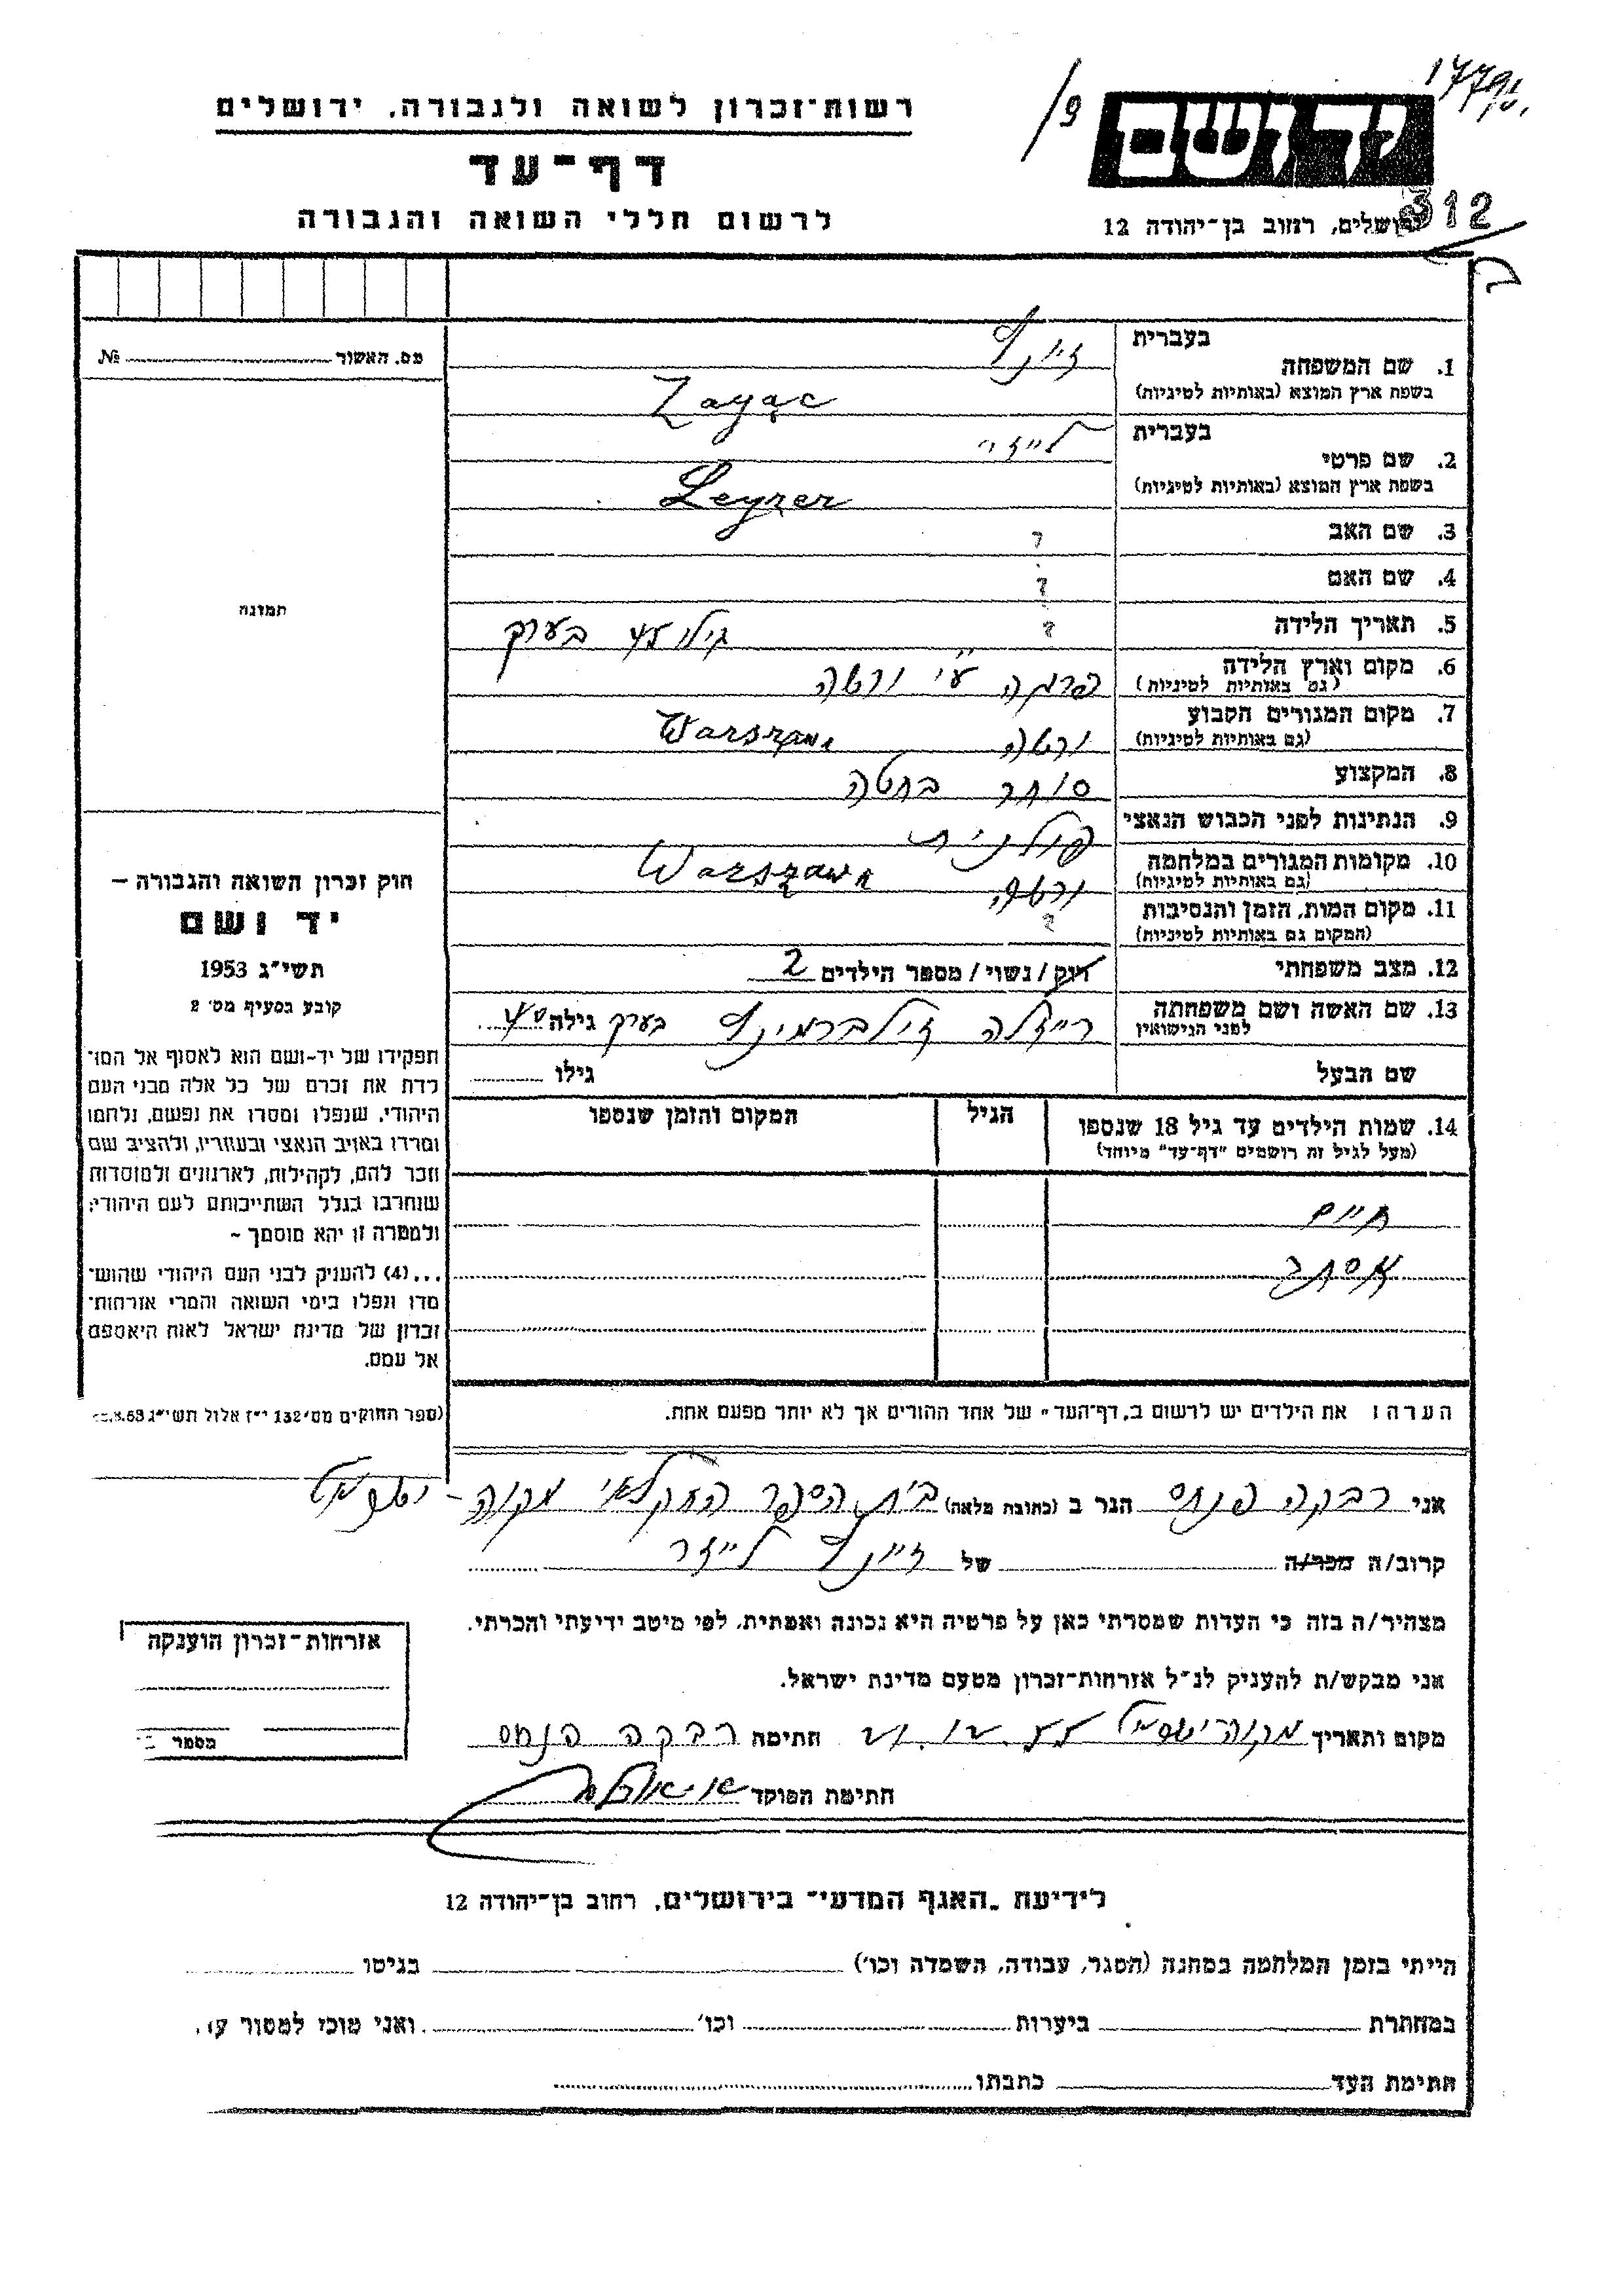 רשות־זכרון לשואה ולגבורה, ירושלים
דף־עד
לרשום חללי השואה והגבורה
9/
יד ושם
312
ירושלים, רחוב בן־יהודה 12
מס. האשור № 
בעברית
1. שם המשפחה
בשפת ארץ המוצא (באותיות לטיניות) Zayąc
בעברית
2. שם פרטי
בשפת ארץ המוצא (באותיות לטיניות) Leyzer
3. שם האב ?
4. שם האם ?
5. תאריך הלידה ? גילו 45 בערך
6. מקום וארץ הלידה פרגה ע״י ורשה
(גם באותיות לטיניות)
7. מקום המגורים הקבוע ורשה Warszawa
(גם באותיות לטיניות)
8. המקצוע סוחר בחטה
9. הנתינות לפני הכבוש הנאצי פולנית
10. מקומות המגורים במלחמה ורשה Warszawa
(גם באותיות לטיניות)
11. מקום המות, הזמן והנסיבות ?
(המקום גם באותיות לטיניות)
12. מצב משפחתי רוק / נשוי / מספר הילדים 2
13. שם האשה ושם משפחתה לפני הנישואין רייזלה זילברמינץ גילה בערך 40
שם הבעל גילו
14. שמות הילדים עד גיל 18 שנספו הגיל המקום והזמן שנספו
(מעל לגיל זה רושמים "דף־עד" מיוחד)
חיים
אסתר
הערה: את הילדים יש לרשום ב„דף־העד" של אחד ההורים אך לא יותר מפעם אחת.
תמונה
חוק זכרון השואה והגבורה –
יד ושם
תשי״ג 1953
קובע בסעיף מס׳ 2
תפקידו של יד־ושם הוא לאסוף אל המו־
לדת את זכרם של כל אלה מבני העם
היהודי, שנפלו ומסרו את נפשם, נלחמו
ומרדו באויב הנאצי ובעוזריו, ולהציב שם
וזכר להם, לקהילות, לארגונים ולמוסדות
שנחרבו בגלל השתייכותם לעם היהודי;
ולמטרה זו יהא מוסמך ~
...(4) להעניק לבני העם היהודי שהוש־
מדו ונפלו בימי השואה והמרי אזרחות־
זכרון של מדינת ישראל לאות היאספם
אל עמם.
(ספר החוקים מס׳ 132 י״ז אלול תשי״ג
אני רבקה פנחס הגר ב (כתובת מלאה) בית הספר החקלאי מקוה - ישראל
קרוב/ה מכר/ה של זיינץ לייזר
מצהיר/ה בזה כי העדות שמסרתי כאן על פרטיה היא נכונה ואמתית, לפי מיטב ידיעתי והכרתי.
אני מבקש/ת להעניק לנ״ל אזרחות־זכרון מטעם מדינת ישראל.
מקום ותאריך מקוה ישראל חתימה רבקה פנחס
חתימת הפוקד
אזרחות־זכרון הוענקה
מספר
לידיעת „האגף המדעי״ בירושלים, רחוב בן־יהודה 12
הייתי בזמן המלחמה במחנה (הסגר, עבודה, השמדה וכו׳) בגיטו
במחתרת ביערות וכו׳ ואני מוכן למסור
חתימת העד כתבתו